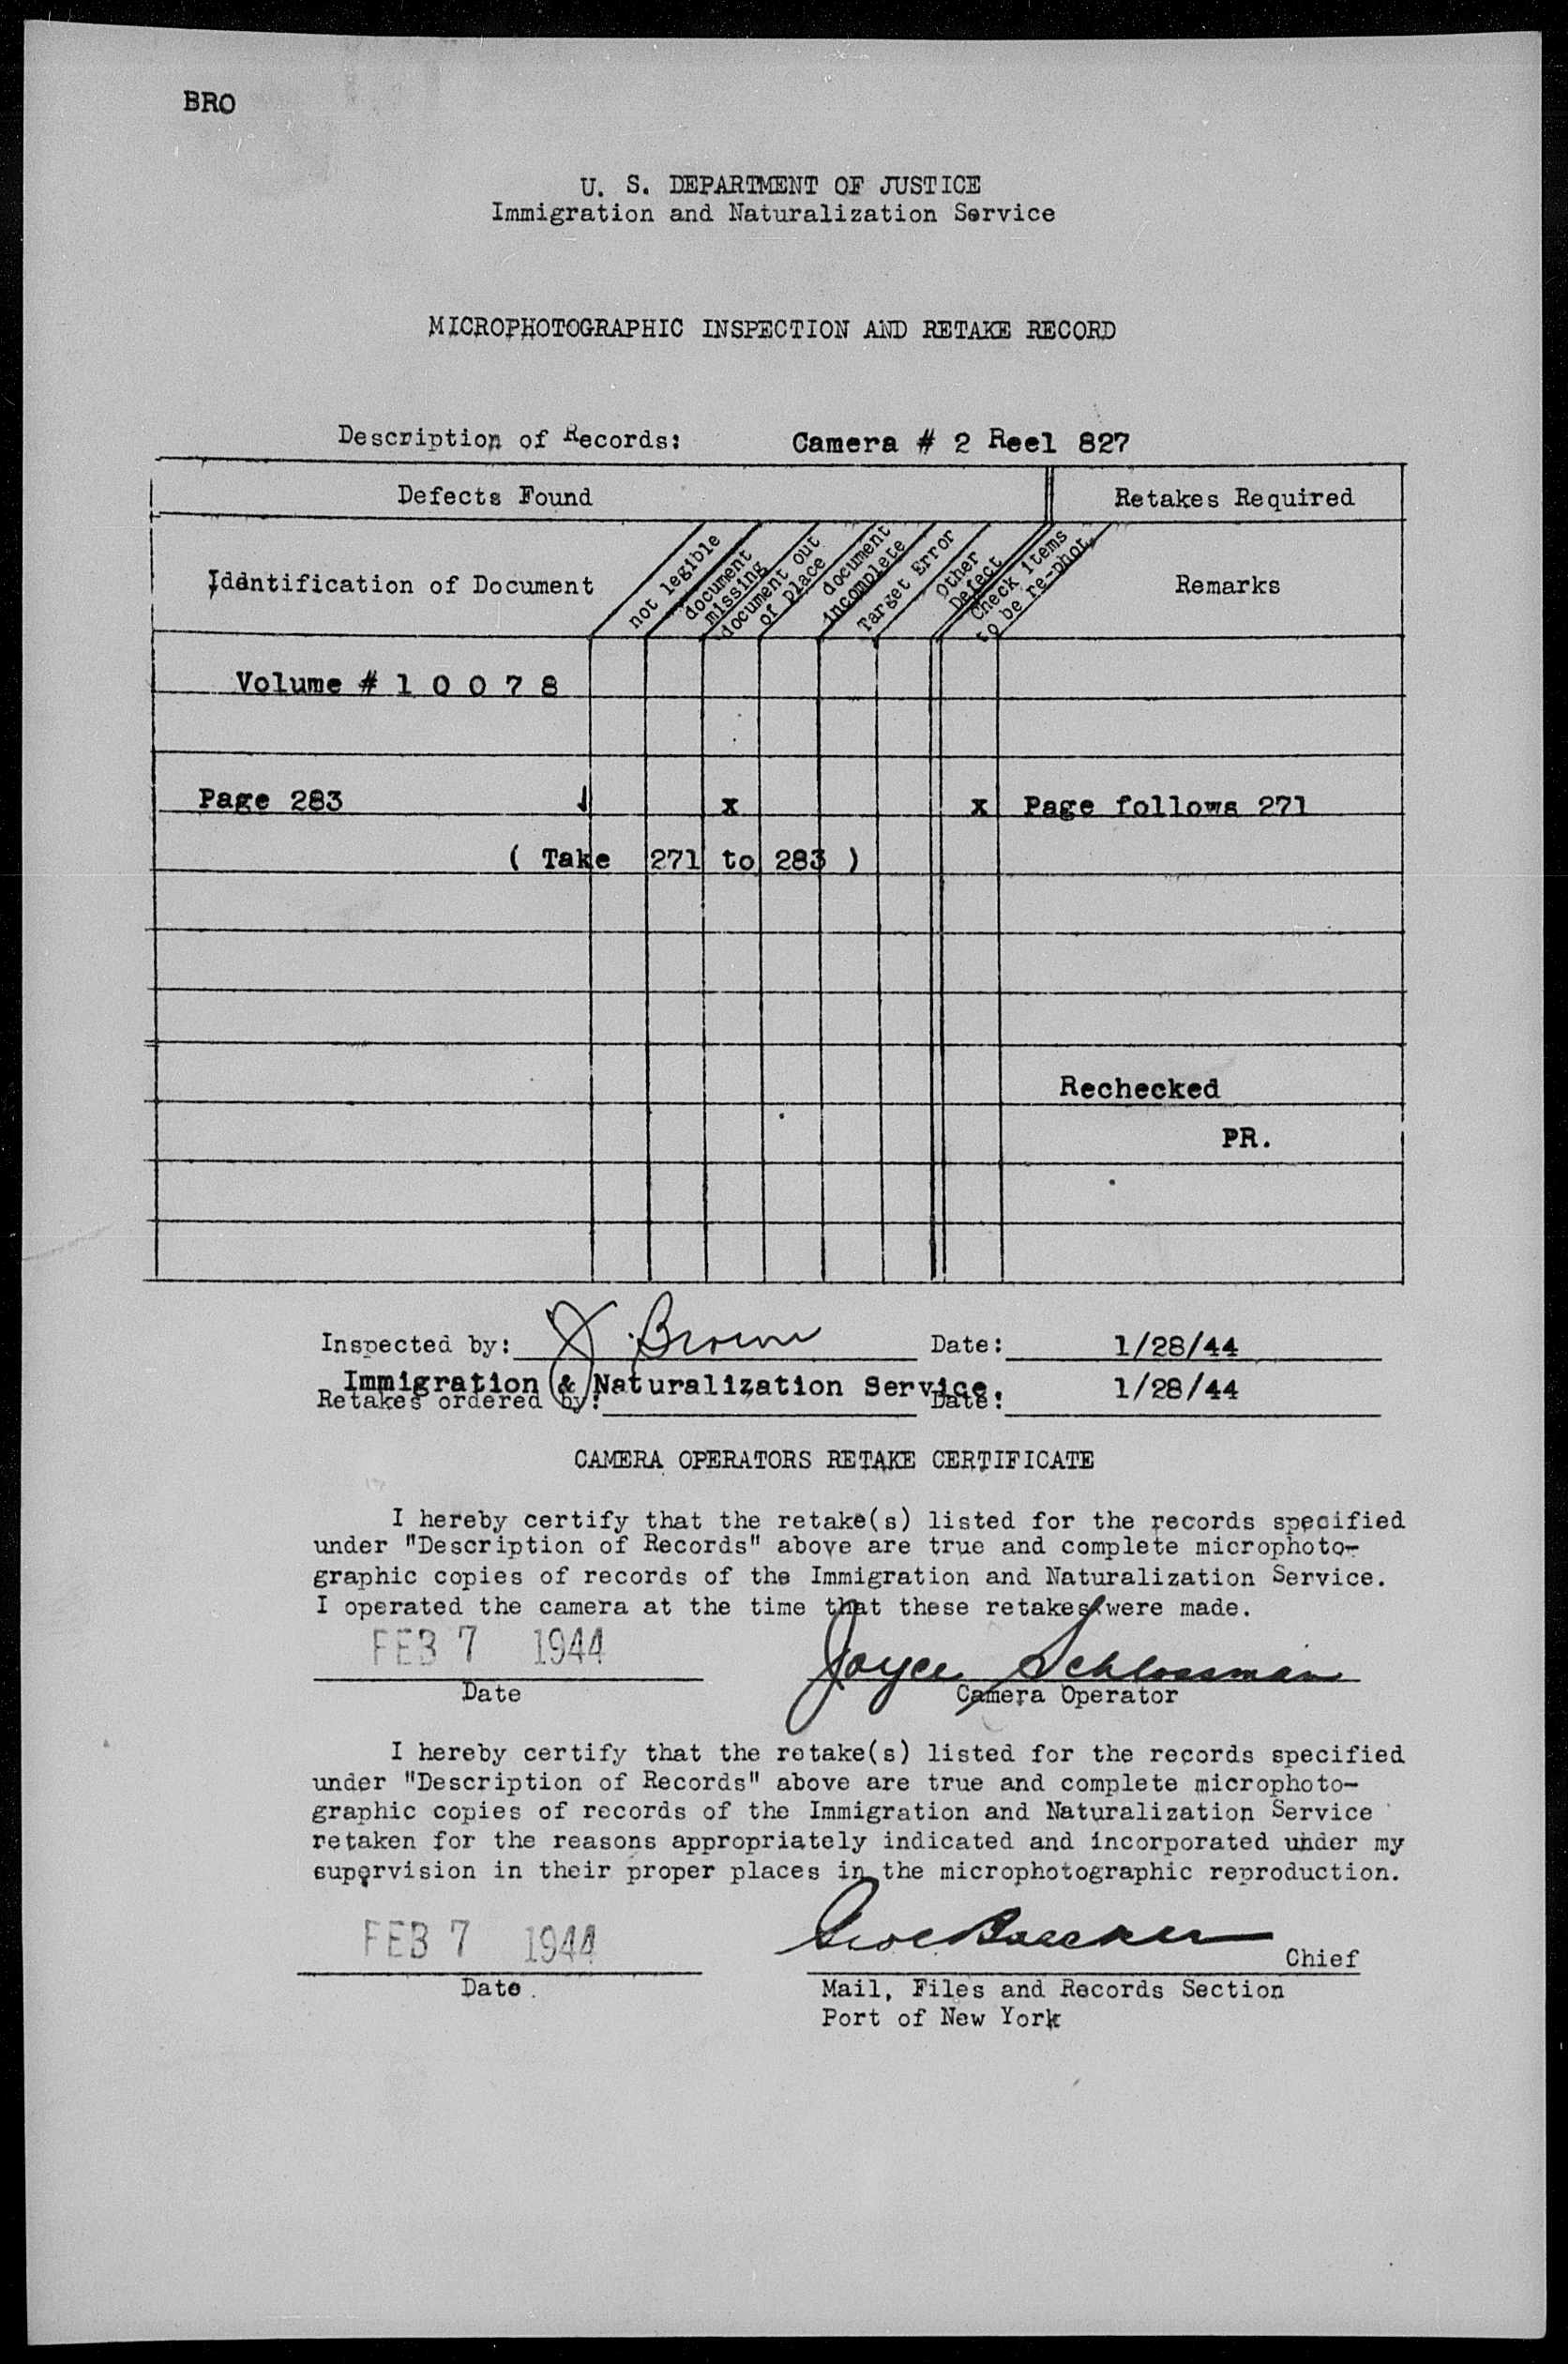 BRO
U. S. DEPARTMENT OF JUSTICE
Immigration and Naturalization Service
MICROPHOTOGRAPHIC INSPECTION AND RETAKE RECORD
Description of Records: Camera # 2 Reel 827
Defects Found Retakes Required
Identification of Document
not legible
document
missing
document out
of place
document
incomplete
Target Error
Other
Defect
Check items
to be re-phot.
Remarks
Volume # 1 0 0 7 8
Page 283 x x Page follows 271
( Take 271 to 283 )
Rechecked
PR.
Inspected by: Brown Date: 1/28/44
Immigration & Naturalization Service. 1/28/44
Retakes ordered by: Date:
CAMERA OPERATORS RETAKE CERTIFICATE
I hereby certify that the retake(s) listed for the records specified
under "Description of Records" above are true and complete microphoto-
graphic copies of records of the Immigration and Naturalization Service.
I operated the camera at the time that these retakes were made.
FEB 7 1944 Joyce Schlossman
Date Camera Operator
I hereby certify that the retake(s) listed for the records specified
under "Description of Records" above are true and complete microphoto-
graphic copies of records of the Immigration and Naturalization Service
retaken for the reasons appropriately indicated and incorporated under my
supervision in their proper places in the microphotographic reproduction.
FEB 7 1944 Chief
Date Mail, Files and Records Section
Port of New York